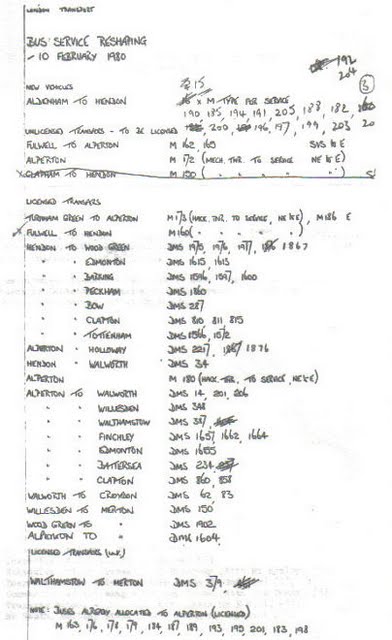 LONDON TRANSPORT
BUS SERVICE RESHAPING
- 10 FEBRUARY 1980
192
204
NEW VEHICLES
15
3
ALDENHAM TO HENDON x M-TYPE FOR SERVICE
190, 185, 194, 191, 205, 188, 182,
UNLICENSED TRANSFERS - TO BE LICENSED 200, 196, 197, 199, 203, 20
FULWELL TO ALPERTON M 162, 165 SVS N E
ALPERTON M 172 (MECH. TNR. TO SERVICE NE & E)
CLAPHAM TO HENDON M 150 ( " " " " )
LICENSED TRANSFERS
TURNHAM GREEN TO ALPERTON M 173 (MECH. TNR. TO SERVICE, NE & E), M186 E
FULWELL TO HENDON M160 ( " " " " )
HENDON TO WOOD GREEN DMS 1975, 1976, 1977, 1867
" " EDMONTON DMS 1615 1613
" " BARKING DMS 1596, 1597, 1600
" " PECKHAM DMS 1860
" " BOW DMS 287
" " CLAPTON DMS 810 811 815
" " TOTTENHAM DMS 1566, 1572
ALPERTON " HOLLOWAY DMS 2217, 1876
HENDON " WALWORTH DMS 34
ALPERTON M 180 (MECH. TNR. TO SERVICE, NE & E)
ALPERTON TO WALWORTH DMS 14, 201, 206
" " WILLESDEN DMS 348
" " WALTHAMSTOW DMS 387,
" " FINCHLEY DMS 1657, 1662, 1664
" " EDMONTON DMS 1655
" " BATTERSEA DMS 234
" " CLAPTON DMS 860, 858
WALWORTH TO CROYDON DMS 62, 83
WILLESDEN TO MERTON DMS 150
WOOD GREEN TO " DMS 1902
ALPERTON TO " DMS 1604
LICENSED TRANSFERS (W.F.)
WALTHAMSTOW TO MERTON DMS 379
NOTE: BUSES ALREADY ALLOCATED TO ALPERTON (LICENSED)
M 163, 176, 178, 179, 184, 187, 189, 193, 195, 201, 183, 198